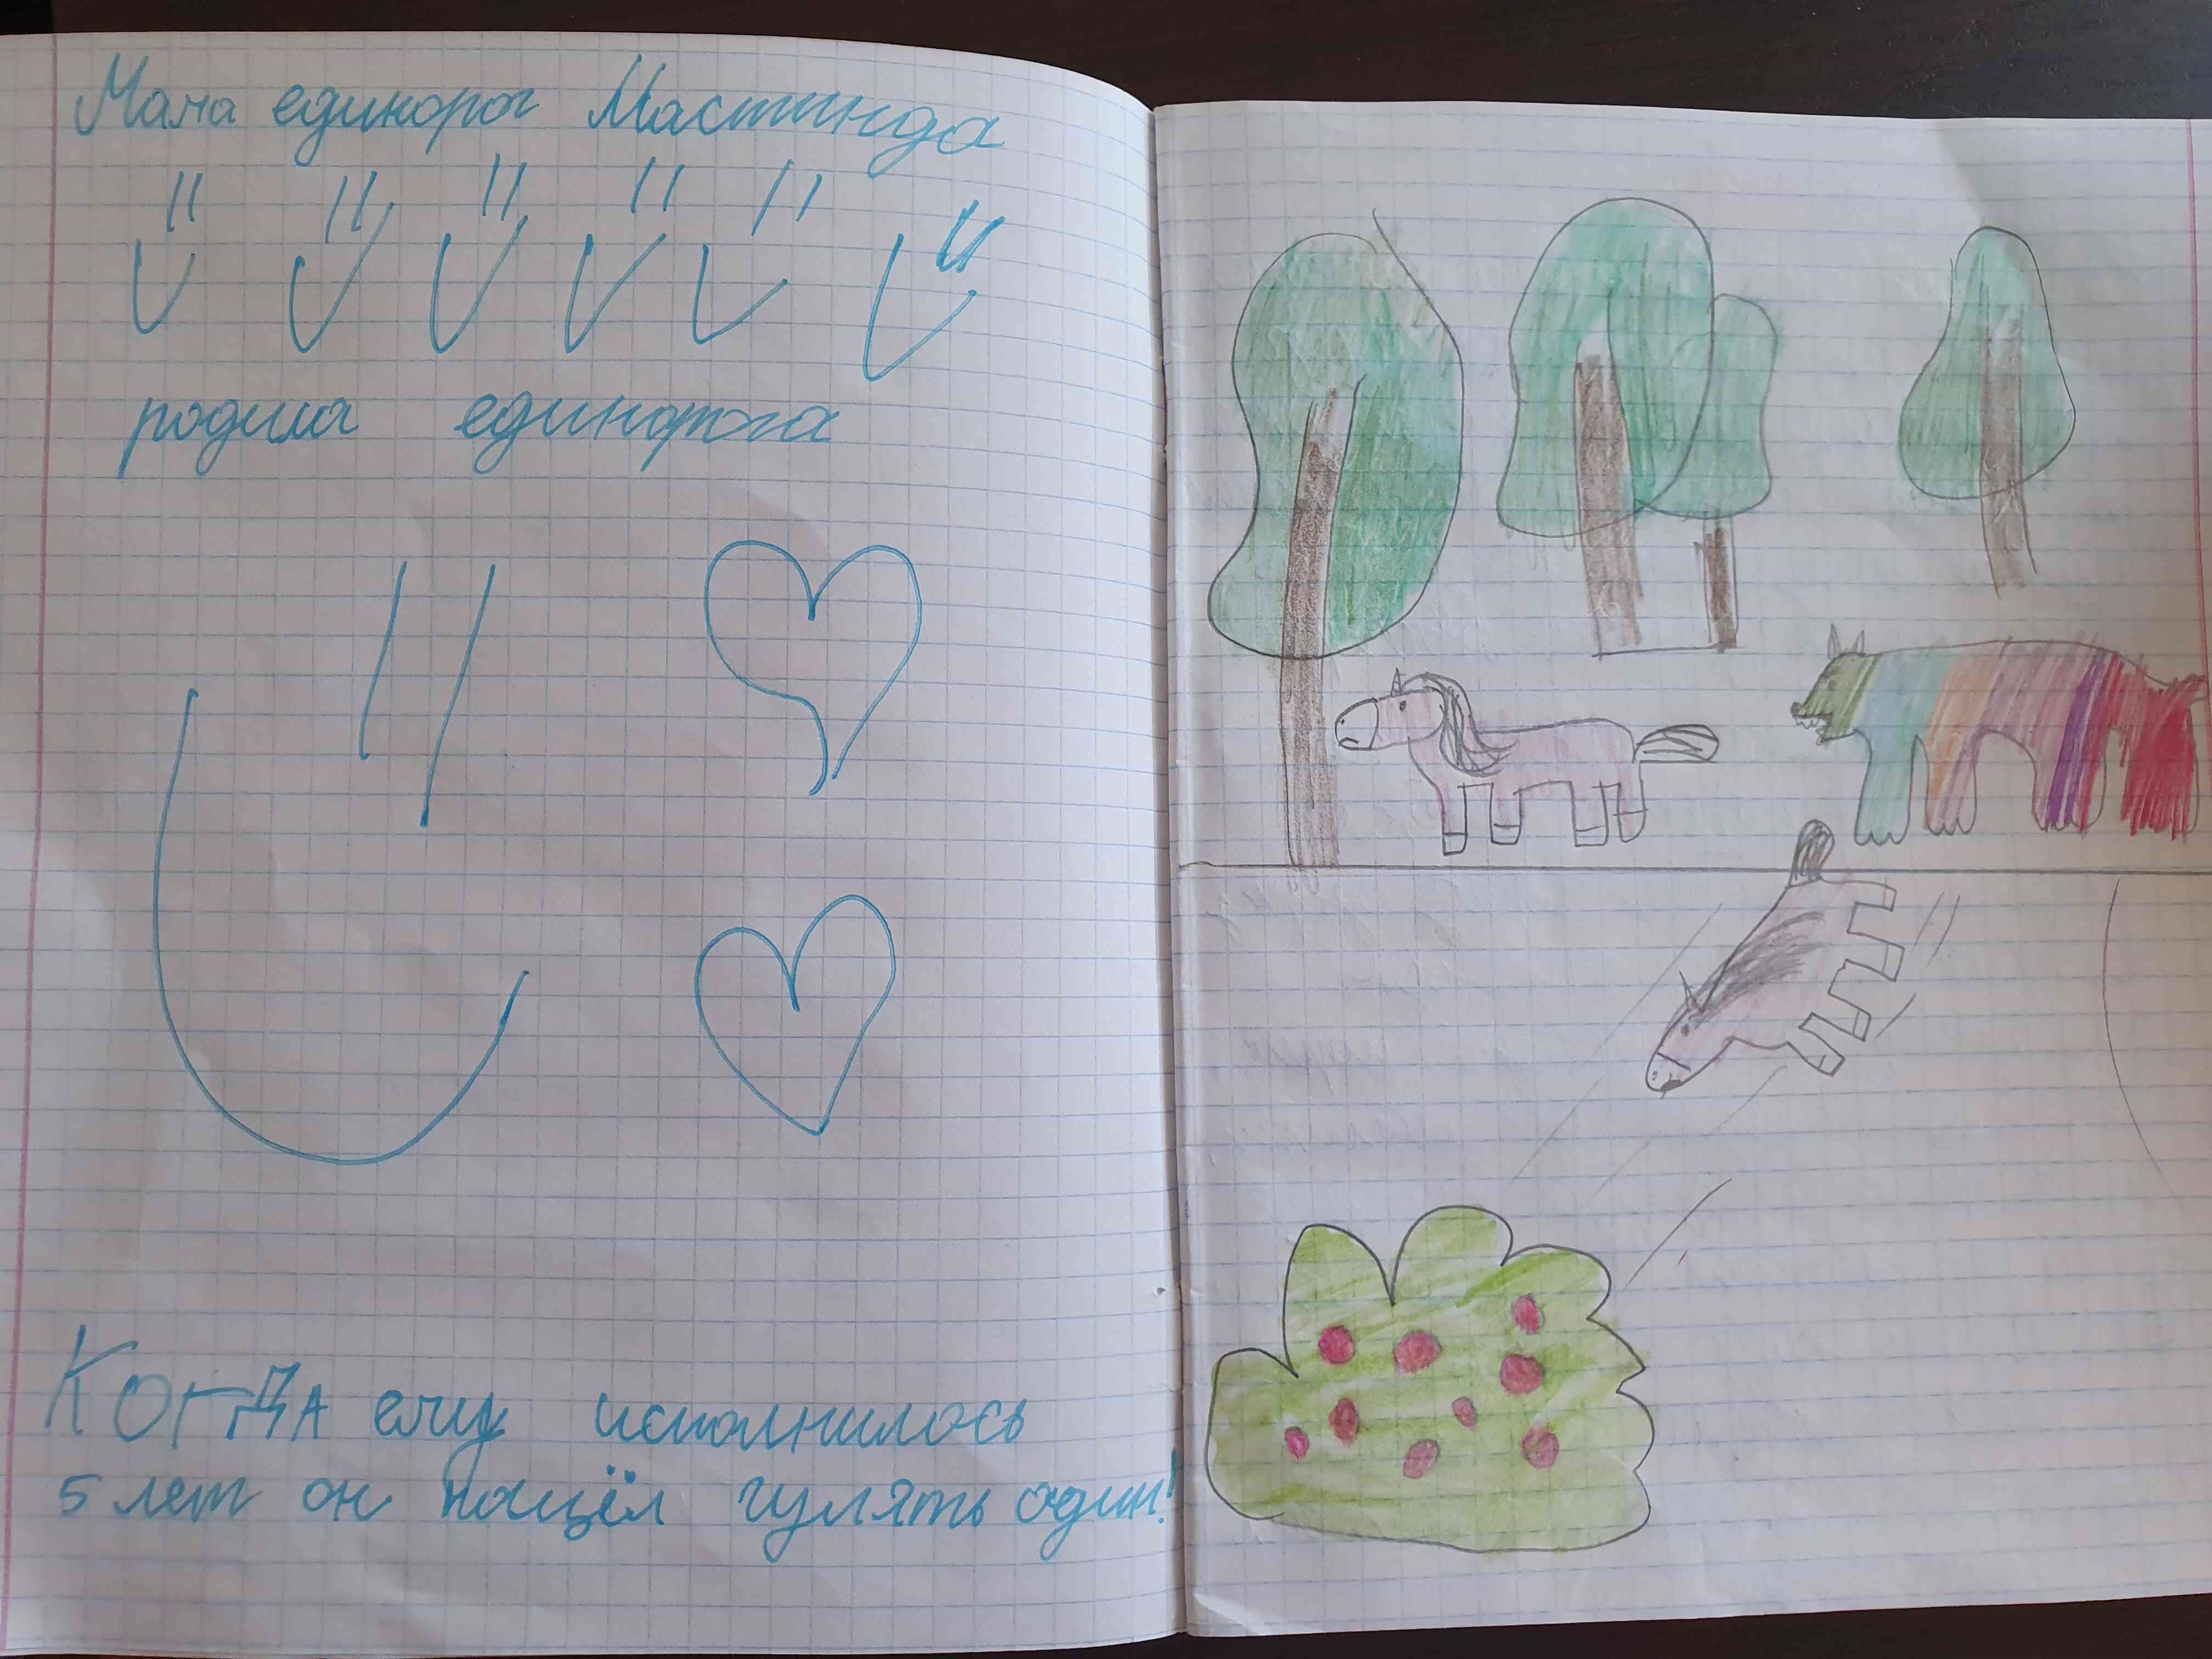 Мама единорог Мастинда
родила единорога
КОГДА ему исполнилось
5 лет он пошёл гулять один!